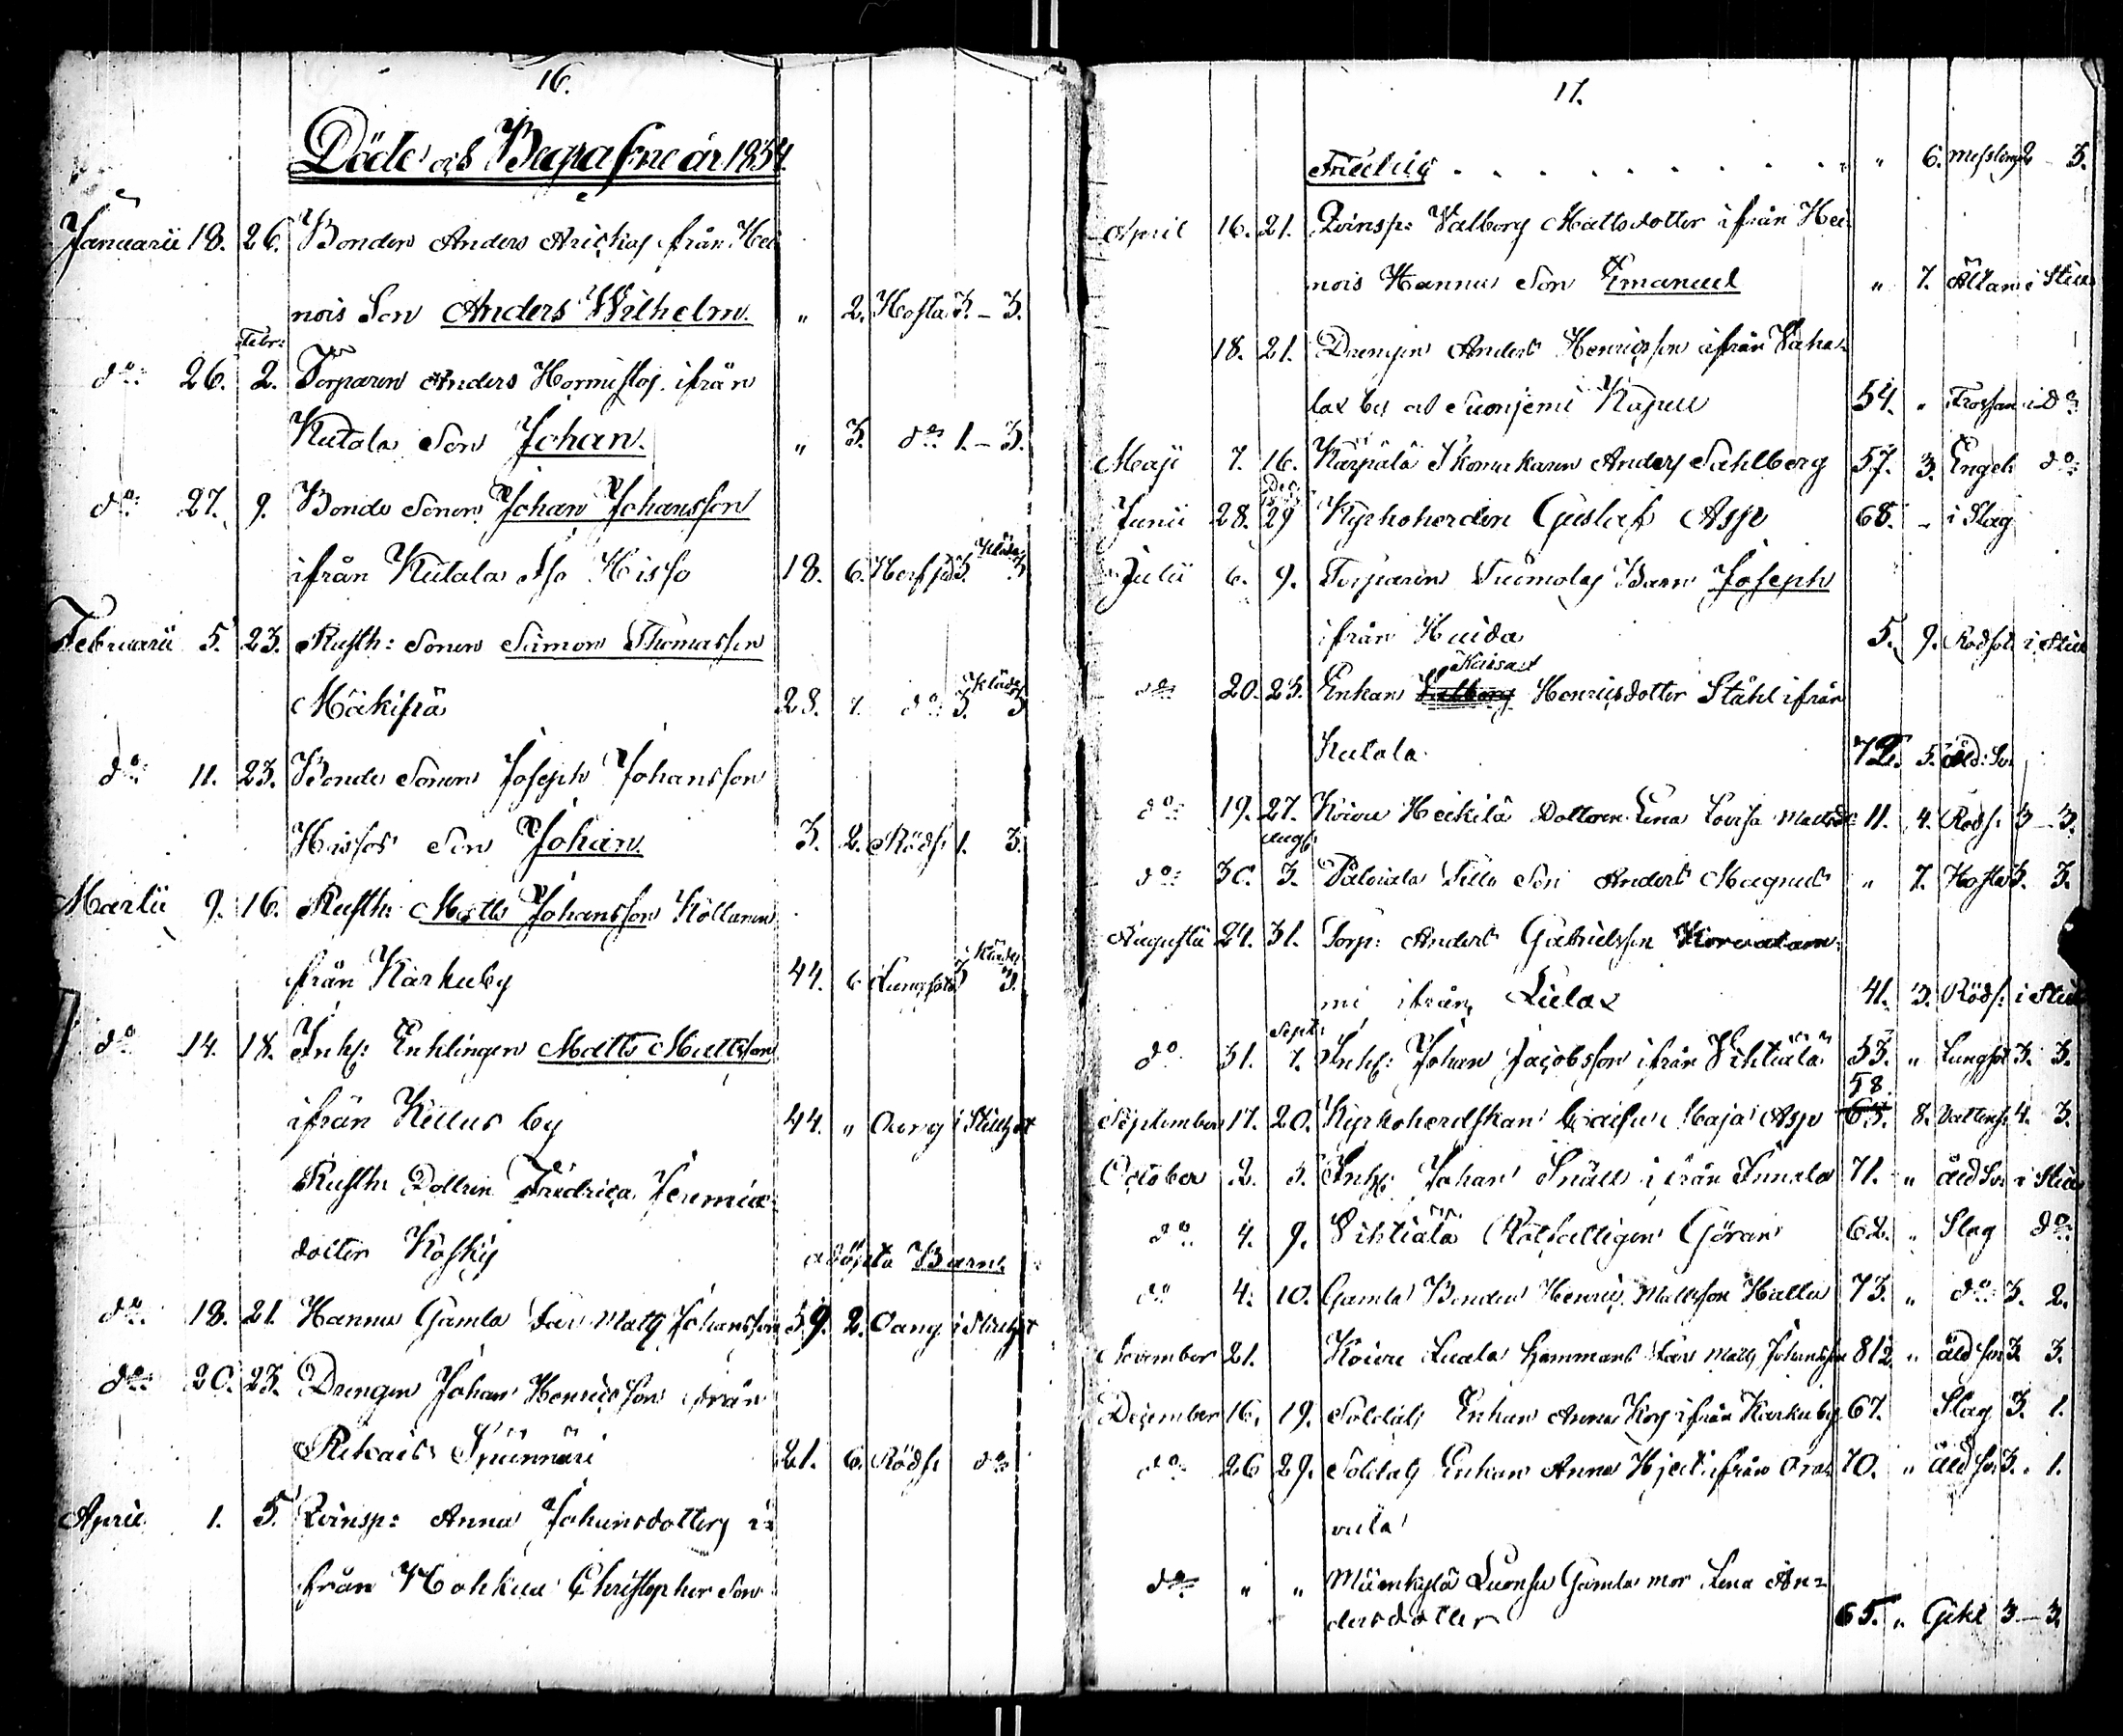 16.
Döde och Begrafne år 1834.
Januarii 18. 26. Bonden Anders Arickas från Hei
nois Son Anders Wilhelm. " 2. Hosta 3. – 3.
Febr:
do: 26. 2. Torparen Anders Hormistos ifrån
Kutala Son Johan. " 3. do: 1. – 3.
do: 27. 9. Bonde Sonen Johan Johansson
ifrån Kutala Hisso 18. 6. 3. Kläder
Februarii 5. 23. Rusth: Sonen Simon Thomasson
Mäkiprä 28. do: 3. Kläde 3
do: 11. 23. Bonde Sonen Joseph Johansson
Hissos Son Johan 3. 2. Röds: 1. 3.
Martii 9. 16. Rusth: Matts Johansson Köllaren
från Karkuby 44. 6 Lungsot 3 Kläder 3.
do 14. 18. Inhs: Enklingen Matts Mattsson
ifrån Killus by 44. " i Stillhet
Rusth: Dottren Fredrica Jeremiæ
dotter Kosky odöpta Barn.
do: 18. 21. Hannu Gamla Far Matts Johansson 59. 2. i Stillhet
do: 20. 23. Drengen Johan Henricsson ifrån
21. 6. Röds: do:
April 1. 5. Qvinsp: Anna Johansdotters i=
från Nohkua Christopher Son
17.
Friedrig . . . . . . . . . . " 6. messling 2 – 3.
April 16. 21. Qvinsp: Valborg Mattsdotter ifrån Hei
nois Hannu Son Emanuel " 7. Ältan i Still
18. 21. Drengen Anders Henricsson ifrån Vaha=
lax by och Suonjemi Kapell 54. " Frossan i do:
Maji 7. 16. Karpala Skomakaren Anders Sahlberg 57. 3. Engels do:
Junii 28. 29 Kyrkoherden Gustaf Asp 68. – i Slag
Julii 6. 9. Torparen Tuomolas Barn Joseph
ifrån Huida 5. 9. Rödsot i Still
Kaisa
do: 20. 23. Enkan Valborg Henricsdotter Ståhl ifrån
Kutala. 72. 5. åld:
do: 19. 27. Koivu Heikilä Dottren Lena Lovisa Mattsdr 11. 4. Röds: 3 – 3.
Aug:
do: 30. 3. Palviala Tillo Son Anders Magnus " 7. Hosta 3. 3.
Augusti 24. 31. Torp: Anders Gabrielsson Korvalam=
mi ifrån Lielax 41. 3. Röds: i Still
Sept:
do 31. 7. Inhs: Johan Jacobsson ifrån Vihtiälä 53. " Lungsot 3. 3.
58
September 17. 20. Kyrkoherdskan Caisu Maja Asp 63. 8. Vattens: 4. 3.
October 2. 5. Inhs: Johan Snäll ifrån Innala 71. " åld i Still
do 4. 9. Vihtiälä Rothalligen Göran 62. " Slag do:
do 4. 10. Gamla Bonden Henric Mattsson Halla 73. " do: 3. 2.
November 21. Koivu Luala Hemmans Far Matts Johansson 81½ " åld 3. 3.
December 16. 19. Soldats Enkan Anna ifrån Karkuby 67. Slag 3. 1.
do: 26 29. Soldats Enkan Anna ifrån Ora= 70. " åld 3. 1.
vula
do: " " Mäenkylä Luonsu Gamla mor Lena An=
dersdotter 65. " Gikt 3 – 3.